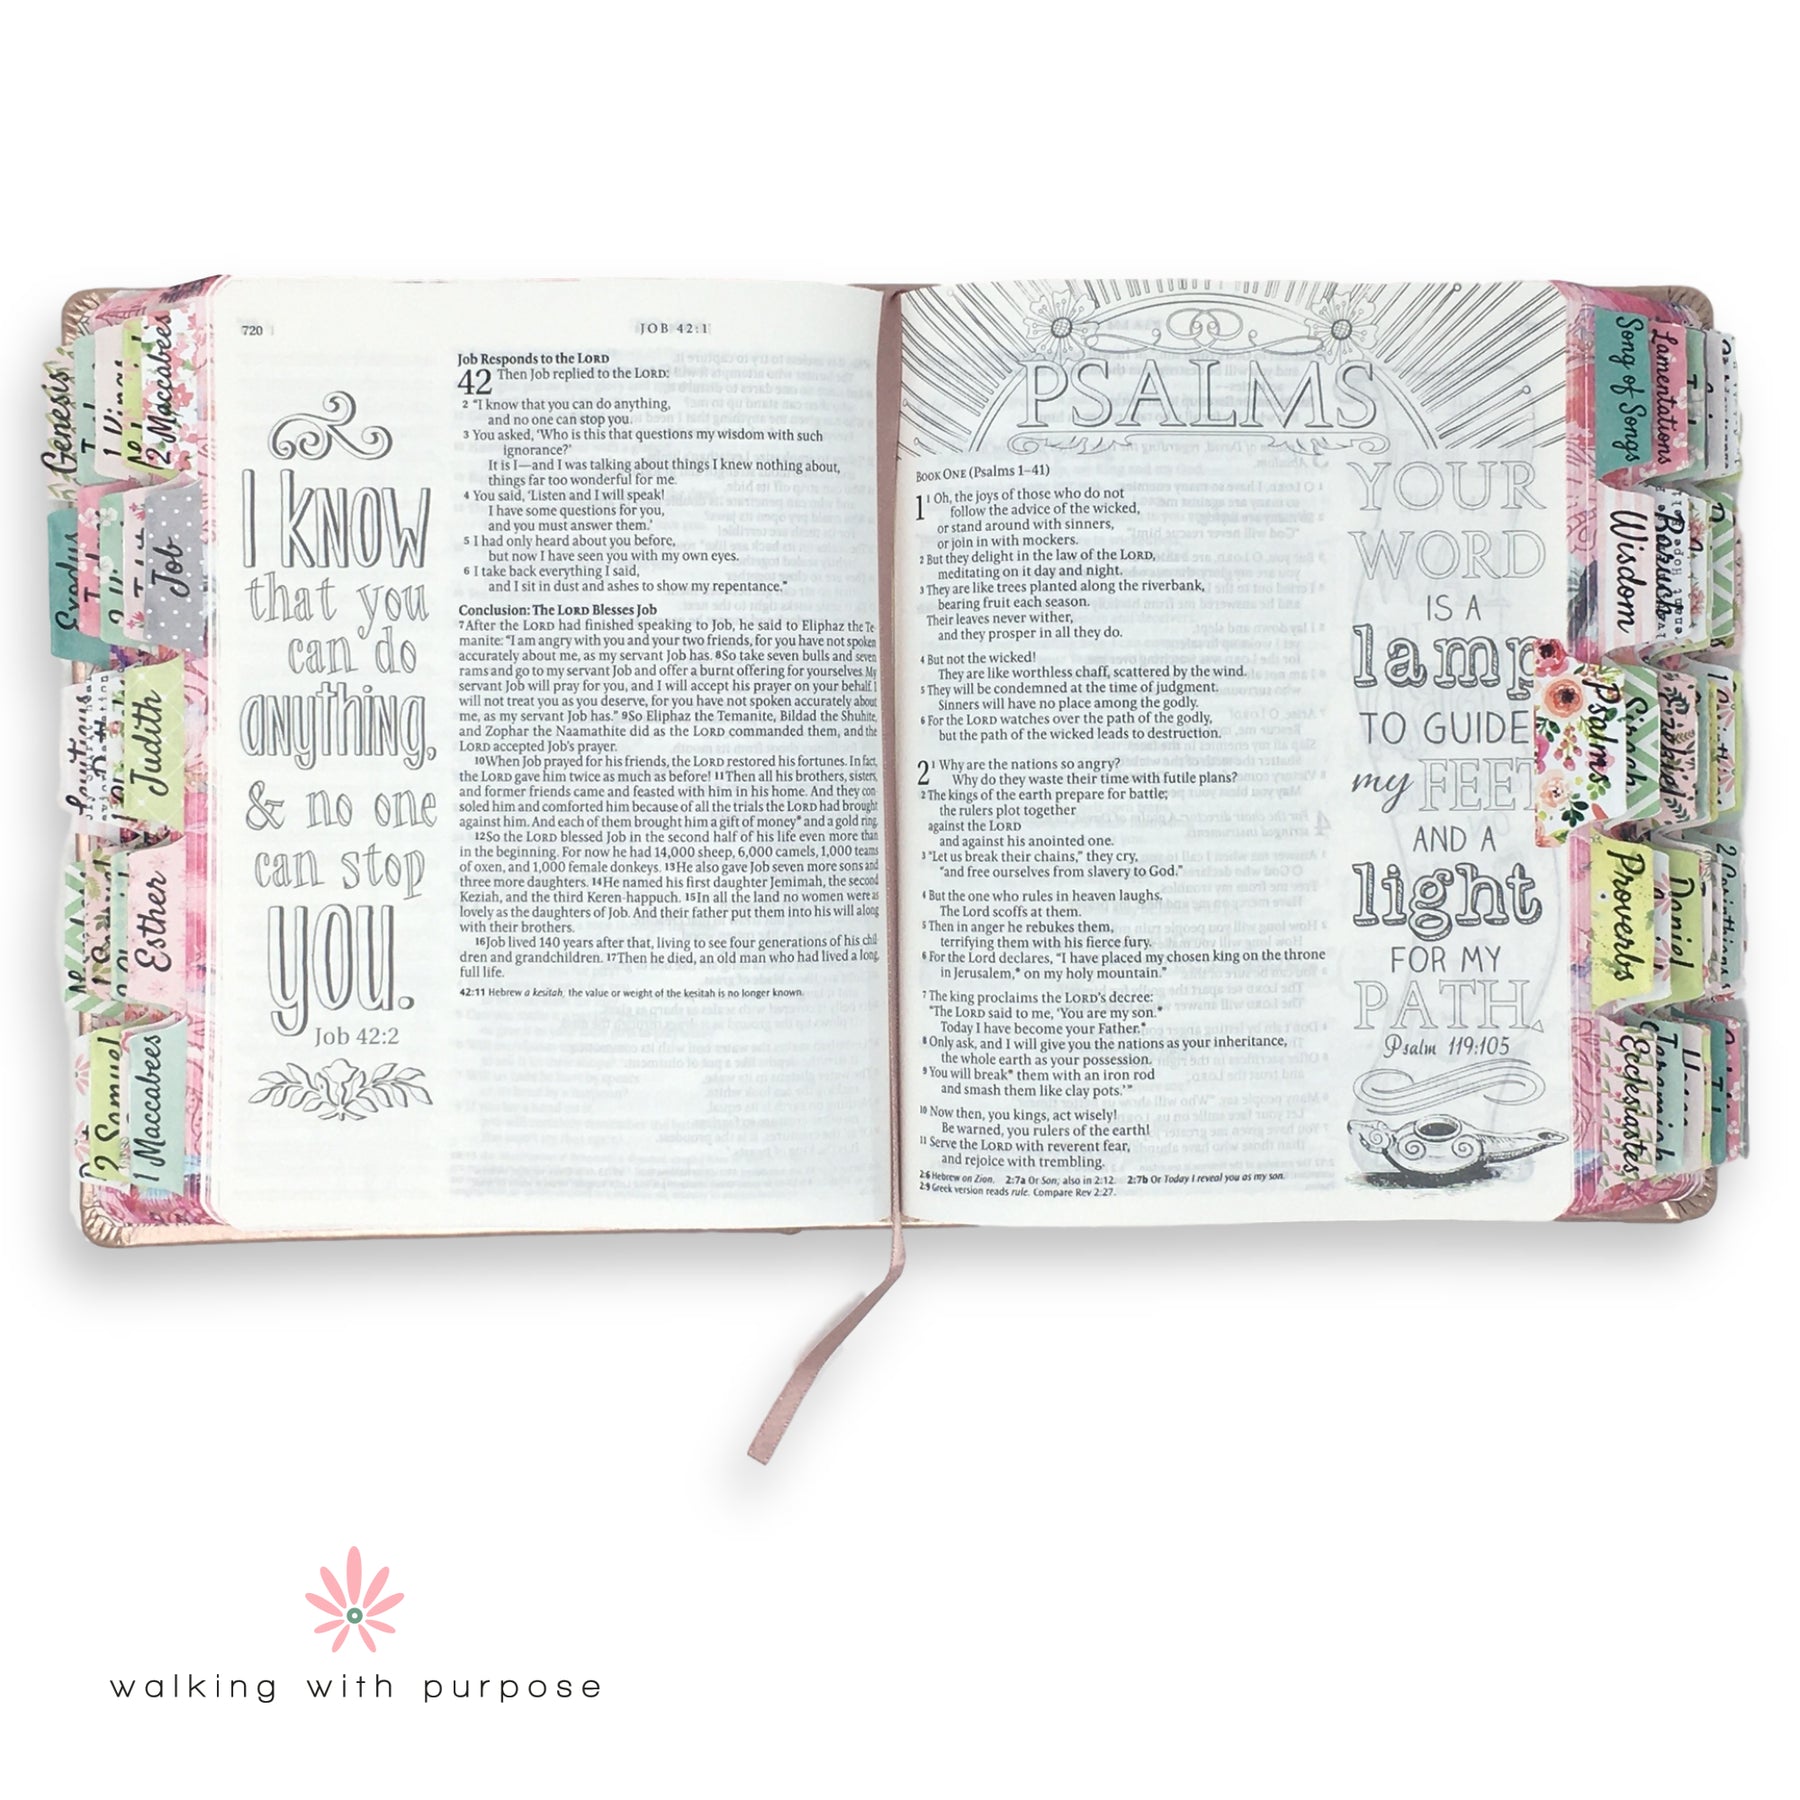 720
JOB 42:1
I KNOW
that you
can do
anything,
& no one
can stop
YOU.
Job 42:2
Job Responds to the LORD
42 Then Job replied to the LORD:
2 “I know that you can do anything,
and no one can stop you.
3 You asked, ‘Who is this that questions my wisdom with such
ignorance?’
It is I—and I was talking about things I knew nothing about,
things far too wonderful for me.
4 You said, ‘Listen and I will speak!
I have some questions for you,
and you must answer them.’
5 I had only heard about you before,
but now I have seen you with my own eyes.
6 I take back everything I said,
and I sit in dust and ashes to show my repentance.”
Conclusion: The LORD Blesses Job
7After the LORD had finished speaking to Job, he said to Eliphaz the Te
manite: “I am angry with you and your two friends, for you have not spoken
accurately about me, as my servant Job has. 8So take seven bulls and seven
rams and go to my servant Job and offer a burnt offering for yourselves. My
servant Job will pray for you, and I will accept his prayer on your behalf. I
will not treat you as you deserve, for you have not spoken accurately about
me, as my servant Job has.” 9So Eliphaz the Temanite, Bildad the Shuhite,
and Zophar the Naamathite did as the LORD commanded them, and the
LORD accepted Job’s prayer.
10When Job prayed for his friends, the LORD restored his fortunes. In fact,
the LORD gave him twice as much as before! 11Then all his brothers, sisters,
and former friends came and feasted with him in his home. And they con
soled him and comforted him because of all the trials the LORD had brought
against him. And each of them brought him a gift of money* and a gold ring.
12So the LORD blessed Job in the second half of his life even more than
in the beginning. For now he had 14,000 sheep, 6,000 camels, 1,000 teams
of oxen, and 1,000 female donkeys. 13He also gave Job seven more sons and
three more daughters. 14He named his first daughter Jemimah, the second
Keziah, and the third Keren-happuch. 15In all the land no women were as
lovely as the daughters of Job. And their father put them into his will along
with their brothers.
16Job lived 140 years after that, living to see four generations of his chil
dren and grandchildren. 17Then he died, an old man who had lived a long,
full life.
42:11 Hebrew a kesitah; the value or weight of the kesitah is no longer known.
PSALMS
BOOK ONE (Psalms 1–41)
1 1 Oh, the joys of those who do not
follow the advice of the wicked,
or stand around with sinners,
or join in with mockers.
2 But they delight in the law of the LORD,
meditating on it day and night.
3 They are like trees planted along the riverbank,
bearing fruit each season.
Their leaves never wither,
and they prosper in all they do.
4 But not the wicked!
They are like worthless chaff, scattered by the wind.
5 They will be condemned at the time of judgment.
Sinners will have no place among the godly.
6 For the LORD watches over the path of the godly,
but the path of the wicked leads to destruction.
2 1 Why are the nations so angry?
Why do they waste their time with futile plans?
2 The kings of the earth prepare for battle;
the rulers plot together
against the LORD
and against his anointed one.
3 “Let us break their chains,” they cry,
“and free ourselves from slavery to God.”
4 But the one who rules in heaven laughs.
The Lord scoffs at them.
5 Then in anger he rebukes them,
terrifying them with his fierce fury.
6 For the Lord declares, “I have placed my chosen king on the throne
in Jerusalem,* on my holy mountain.”
7 The king proclaims the LORD’s decree:
“The LORD said to me, ‘You are my son.*
Today I have become your Father.*
8 Only ask, and I will give you the nations as your inheritance,
the whole earth as your possession.
9 You will break* them with an iron rod
and smash them like clay pots.’”
10 Now then, you kings, act wisely!
Be warned, you rulers of the earth!
11 Serve the LORD with reverent fear,
and rejoice with trembling.
2:6 Hebrew on Zion. 2:7a Or Son; also in 2:12. 2:7b Or Today I reveal you as my son.
2:9 Greek version reads rule. Compare Rev 2:27.
YOUR
WORD
IS A
lamp
TO GUIDE
my FEET
AND A
light
FOR MY
PATH.
Psalm 119:105
Genesis
2 Maccabees
Exodus
Job
Judith
Esther
2 Samuel
1 Maccabees
Song of Songs
Lamentations
Wisdom
Baruch
Psalms
Sirach
Ezekiel
Proverbs
Daniel
2 Corinthians
Ecclesiastes
Jeremiah
walking with purpose